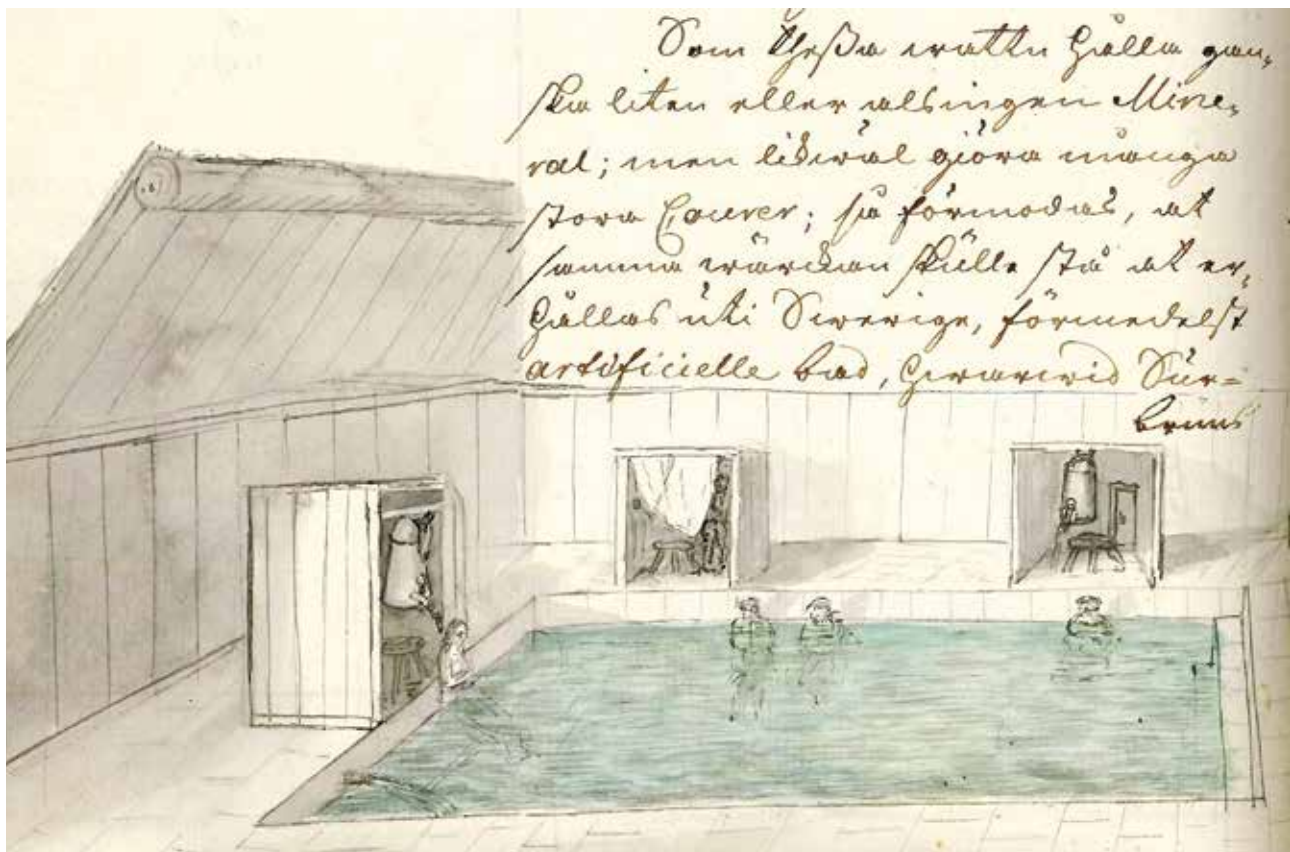 Som theßa wattn hålla gan,
ska liten eller alsingen Mine,
ral; men likwäl giöra många
stora Courer; så förmodas, at
samma wärckan skulle stå at er,
hållas uti Swerige, förmedelst
artificielle bad, hwarwid Sur=
bruns